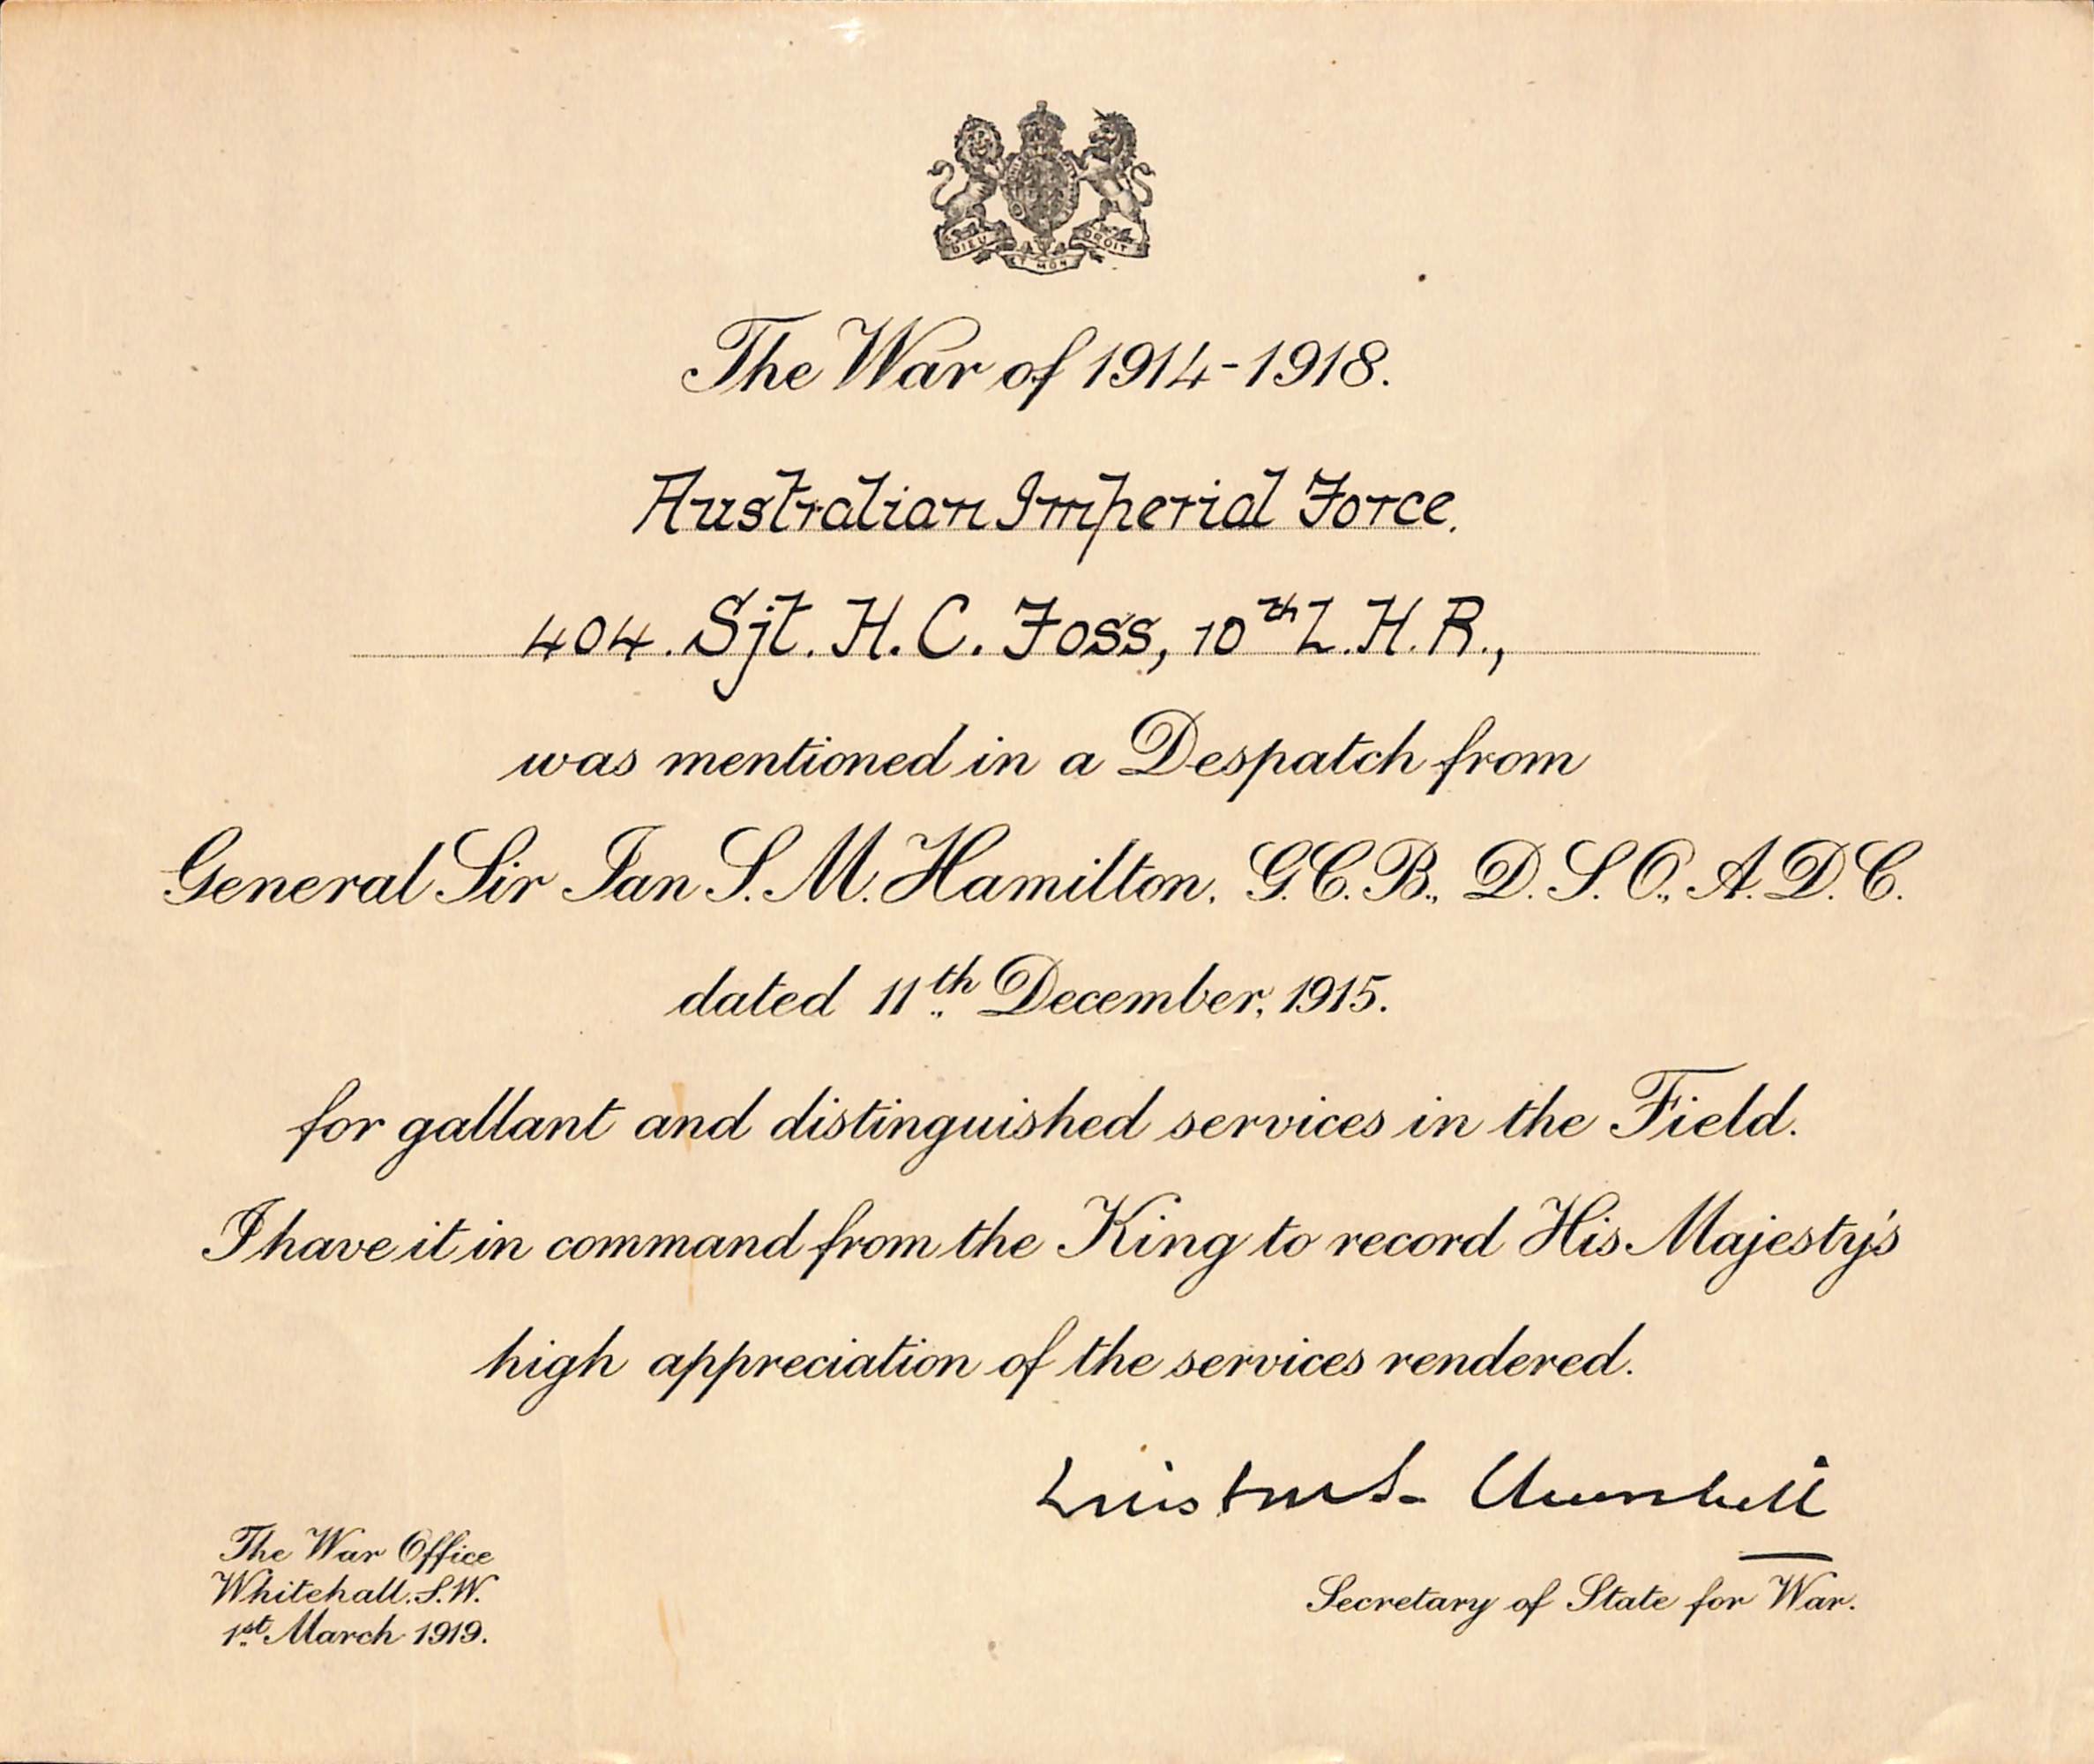 DIEU ET MON DROIT
The War of 1914-1918.
Australian Imperial Force.
404. Sjt. H. C. Foss, 10th L. H. R.,
was mentioned in a Despatch from
General Sir Ian S. M. Hamilton, G.C.B., D.S.O., A.D.C.
dated 11th December, 1915.
for gallant and distinguished services in the Field.
I have it in command from the King to record His Majesty's
high appreciation of the services rendered.
Winston S. Churchill
Secretary of State for War.
The War Office
Whitehall. S.W.
1st March 1919.